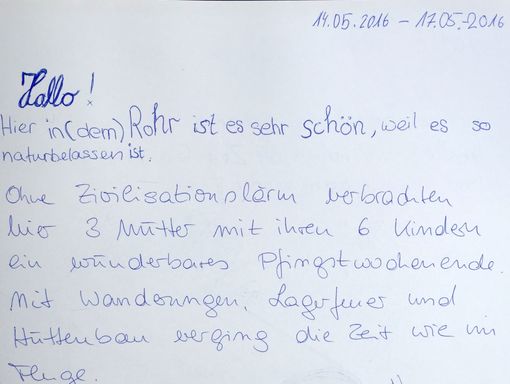 14.05.2016 – 17.05.2016
Hallo!
Hier in (dem) Rohr ist es sehr schön, weil es so
naturbelassen ist.
Ohne Zivilisationslärm verbrachten
hier 3 Mütter mit ihren 6 Kindern
ein wunderbares Pfingstwochenende.
Mit Wanderungen, Lagerfeuer und
Hüttenbau verging die Zeit wie im
Fluge.